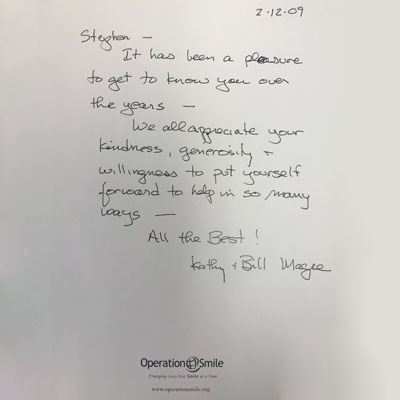 2-12-09
Stephen —
It has been a pleasure
to get to know you over
the years —
We all appreciate your
kindness, generosity +
willingness to put yourself
forward to help in so many
ways —
All the Best!
Kathy + Bill Magee
Operation Smile
Changing Lives One Smile at a Time
www.operationsmile.org